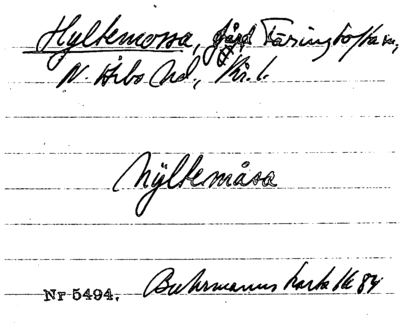 Hyltemossa, gård Färingtofta sn,
N. Åsbo hd., Kr. l.
Nÿltemåsa
Nr 5494. Buhrmanns karta 1684